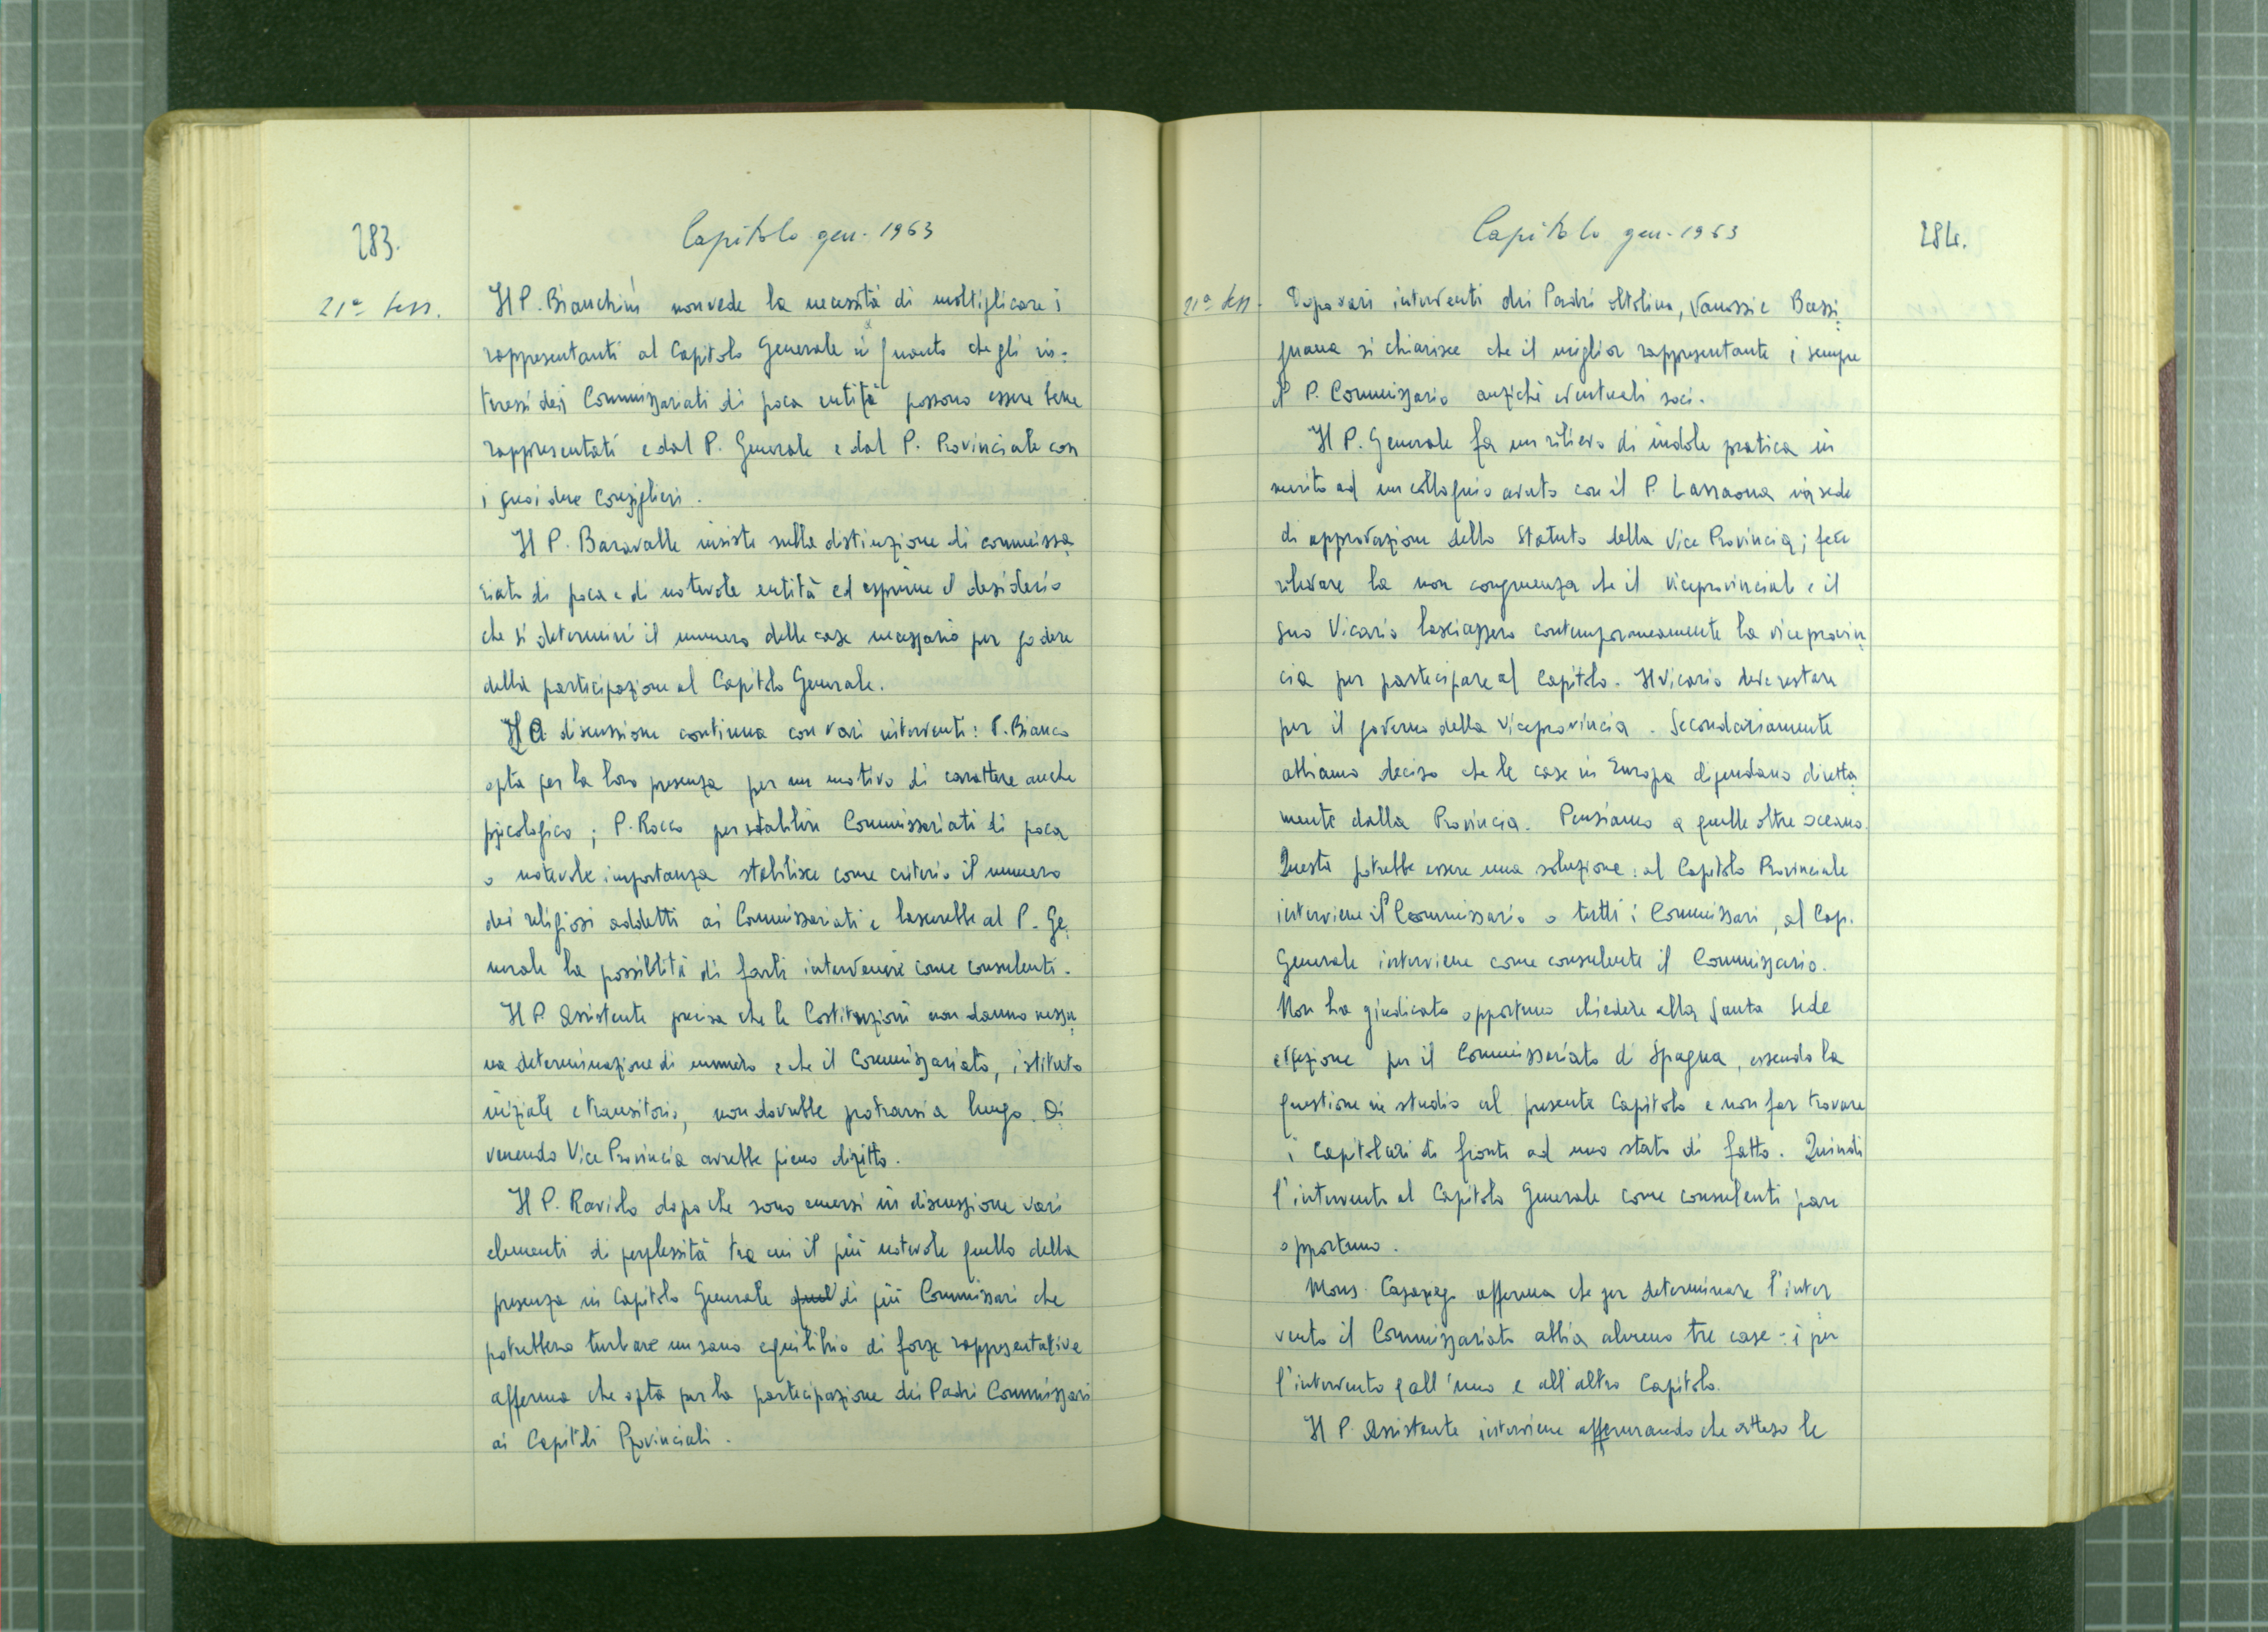 283.
Capitolo gen. 1963
21ª sess.
Il P. Bianchini non vede la necessità di moltiplicare i
rappresentanti al Capitolo Generale in quanto che gli in=
teressi dei Commissariati di poca entità possono essere bene
rappresentati e dal P. Generale e dal P. Provinciale con
i suoi due Consiglieri.
Il P. Baravalle insiste sulla distinzione di commissa
riato di poca e di notevole entità ed esprime il desiderio
che si determini il numero delle case necessario per godere
della partecipazione al Capitolo Generale.
La discussione continua con vari interventi: P. Bianco
opta per la loro presenza per un motivo di carattere anche
psicologico; P. Rocco per stabilire Commissariati di poca
o notevole importanza stabilisce come criterio il numero
dei religiosi addetti ai Commissariati e lascerebbe al P. Ge
nerale la possibilità di farli intervenire come consulenti.
Il P. Assistente precisa che le Costituzioni non danno nessu
na determinazione di numero e che il Commissariato, istituto
iniziale e transitorio, non dovrebbe protrarsi a lungo. Di
venendo Vice Provincia avrebbe pieno diritto.
Il P. Raviolo dopo che sono emersi in discussione vari
elementi di perplessità tra cui il più notevole quello della
presenza in Capitolo Generale quel di più Commissari che
potrebbero turbare un sano equilibrio di forze rappresentative
afferma che opta per la partecipazione dei Padri Commissari
ai Capitoli Provinciali.
Capitolo gen. 1963
284.
21ª sess.
Dopo vari interventi dei Padri Oltolina, Vanossi e Bassi
gnana si chiarisce che il miglior rappresentante è sempre
il P. Commissario anziché eventuali soci.
Il P. Generale fa un rilievo di indole pratica in
merito ad un colloquio avuto con il P. Larraona in sede
di approvazione dello Statuto della Vice Provincia; fece
rilevare la non congruenza che il viceprovinciale e il
suo Vicario lasciassero contemporaneamente la viceprovin
cia per partecipare al Capitolo. Il Vicario deve restare
per il governo della Viceprovincia. Secondariamente
abbiamo deciso che le case in Europa dipendano diretta
mente dalla Provincia. Pensiamo a quelle oltre oceano.
Questa potrebbe essere una soluzione: al Capitolo Provinciale
interviene il Commissario o tutti i Commissari, al Cap.
Generale interviene come consulente il Commissario.
Non ha giudicato opportuno chiedere alla Santa Sede
erezione per il Commissariato di Spagna, essendo la
questione in studio al presente Capitolo e non far trovare
i Capitolari di fronte ad uno stato di fatto. Quindi
l'intervento al Capitolo Generale come consulenti pare
opportuno.
Mons. afferma che per determinare l'inter
vento il Commissariato abbia almeno tre case: è per
l'intervento e all'uno e all'altro Capitolo.
Il P. Assistente interviene affermando che atteso le